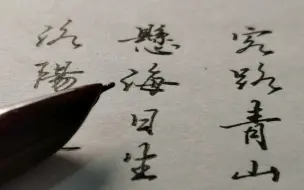 客路青山
懸海日生
洛陽